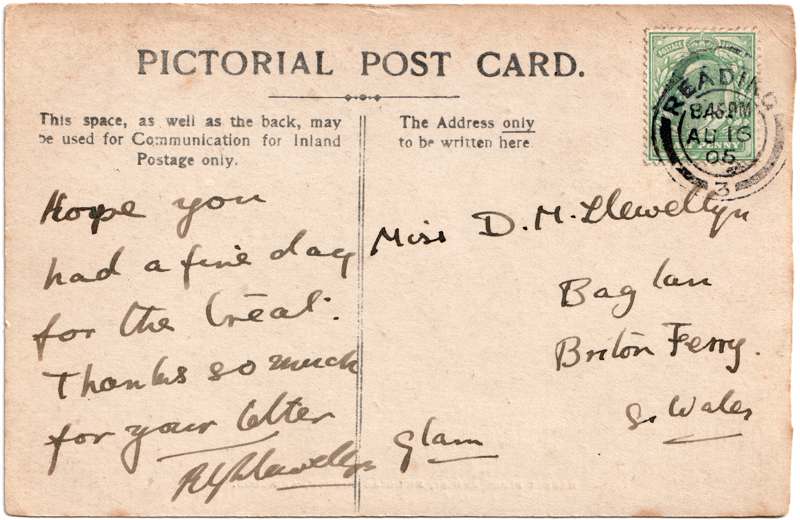 PICTORIAL POST CARD.
This space, as well as the back, may
be used for Communication for Inland
Postage only.
The Address only
to be written here
READING
8.45PM
AU 16
05
3
POSTAGE
PENNY
Hope you
had a fine day
for the Treat.
Thanks so much
for your letter
Llewellyn
Miss D. M. Llewellyn
Baglan
Briton Ferry.
S. Wales
Glam